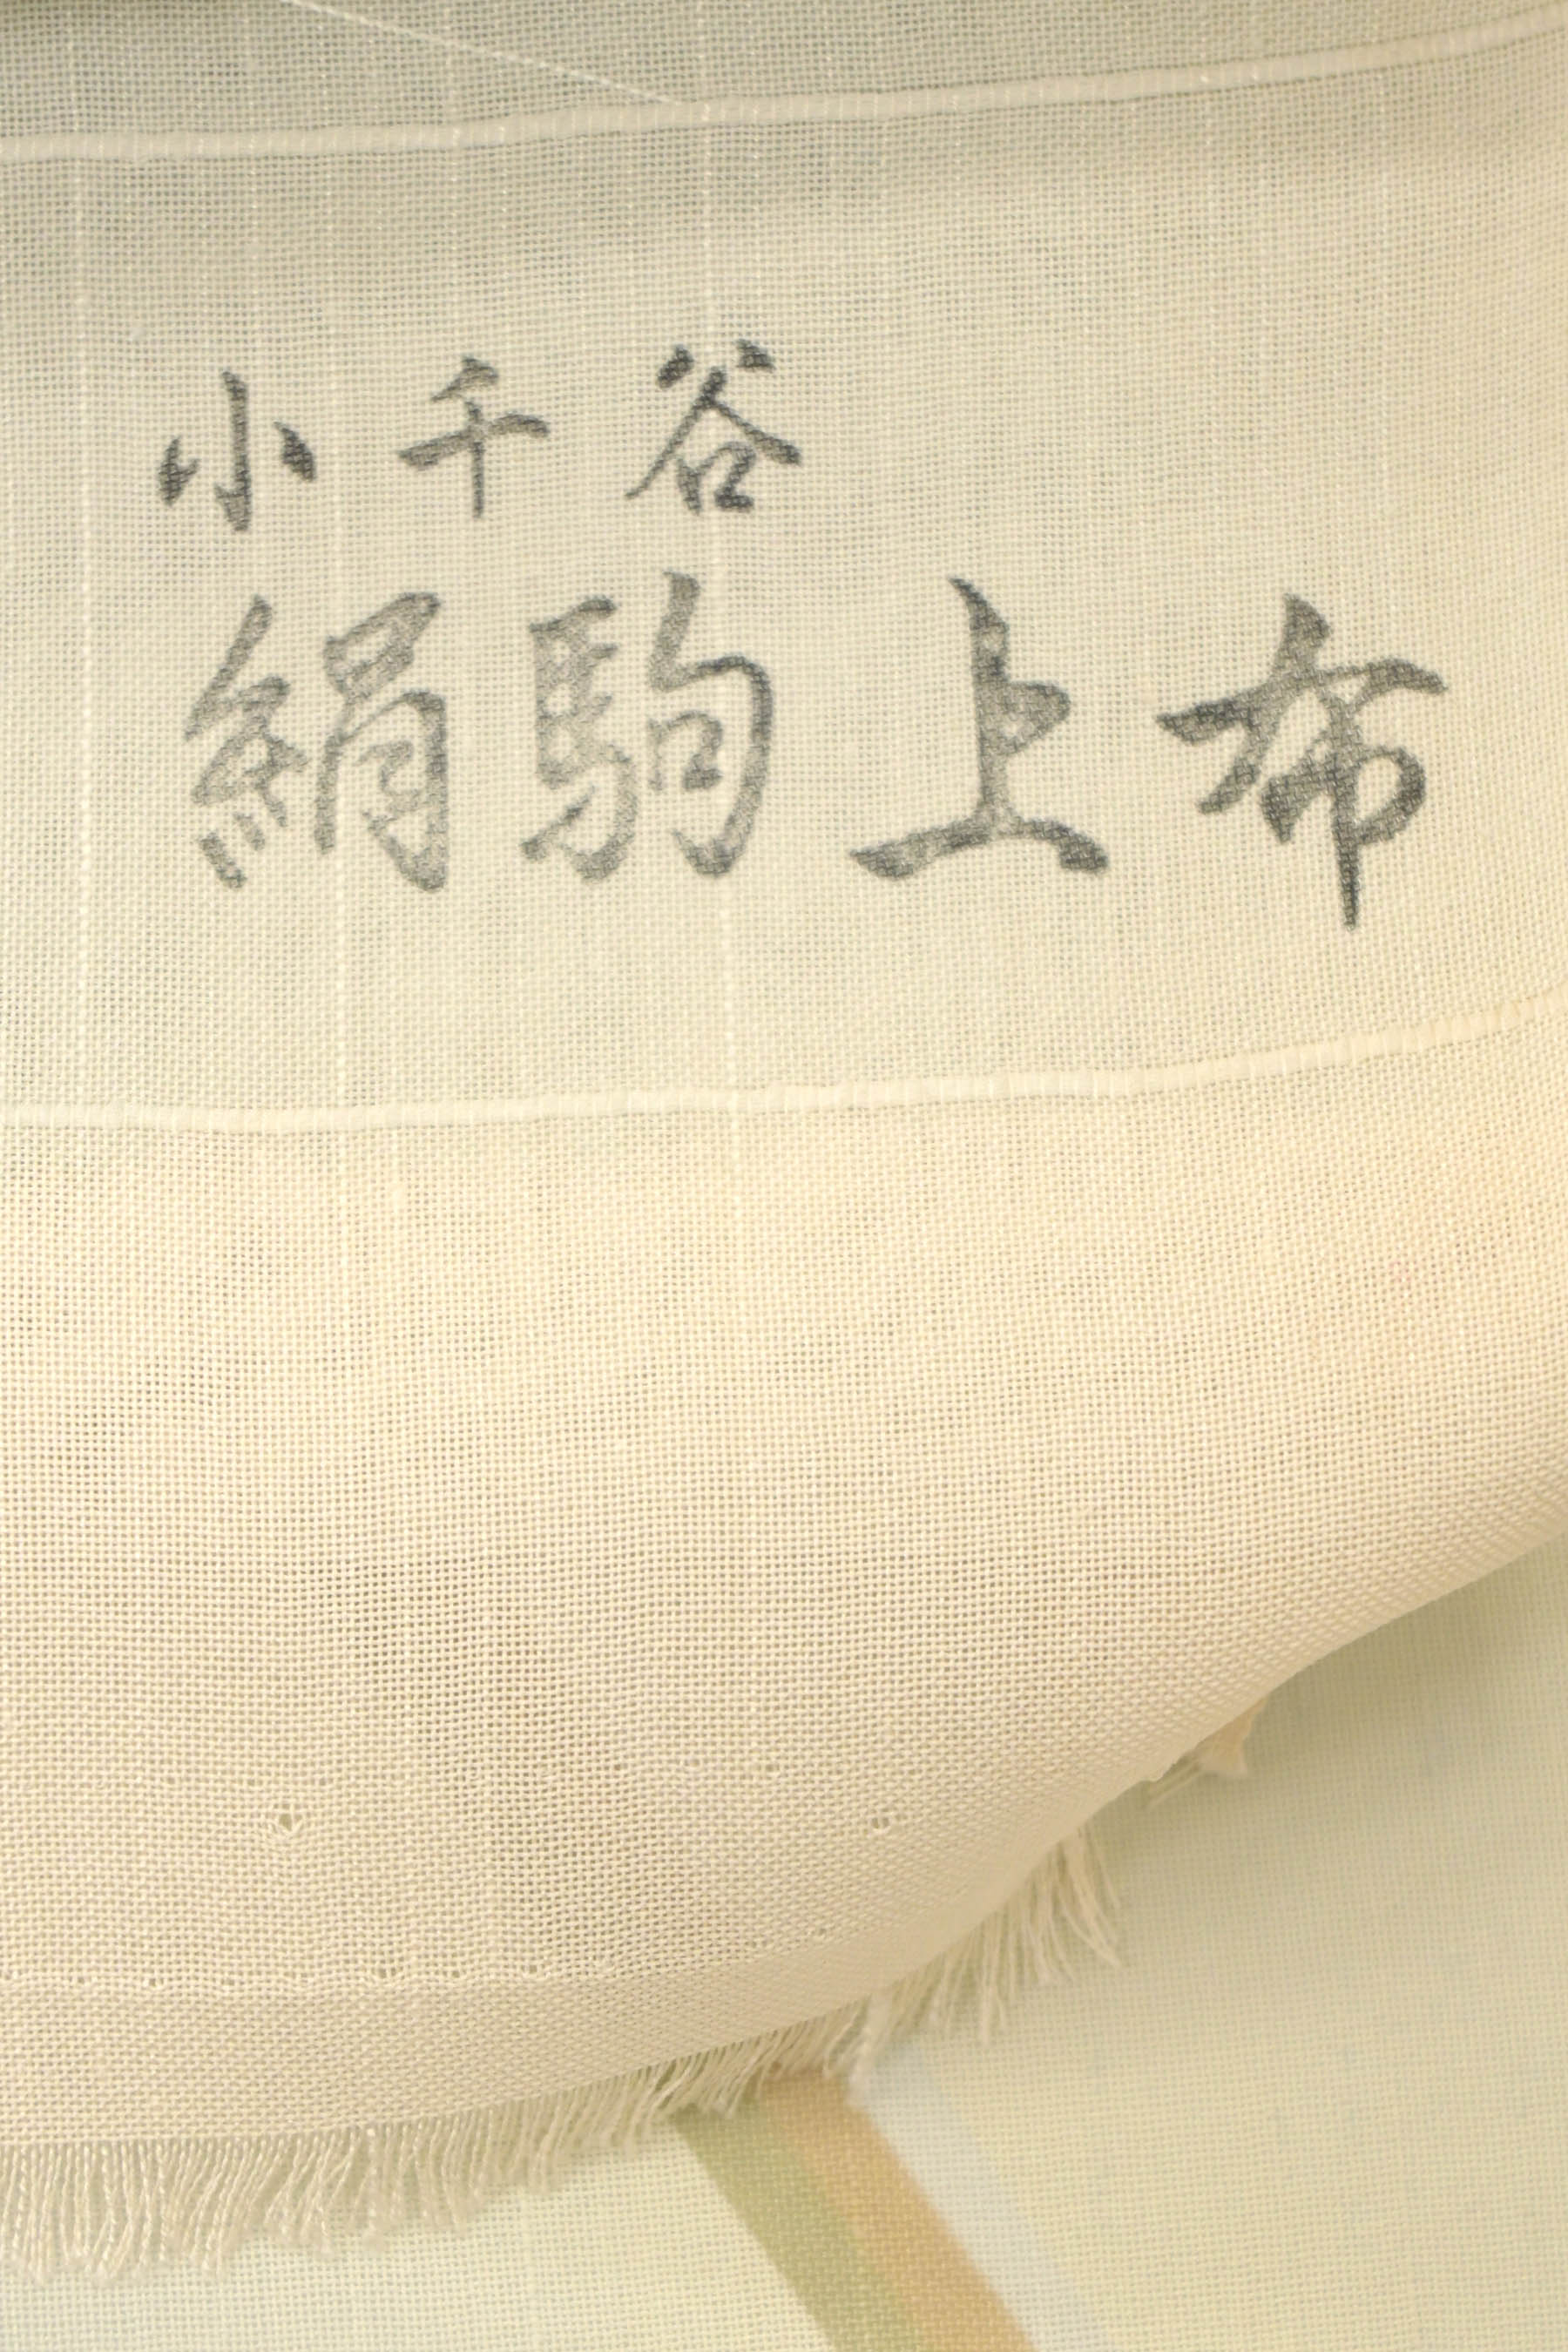 小千谷
絹駒上布